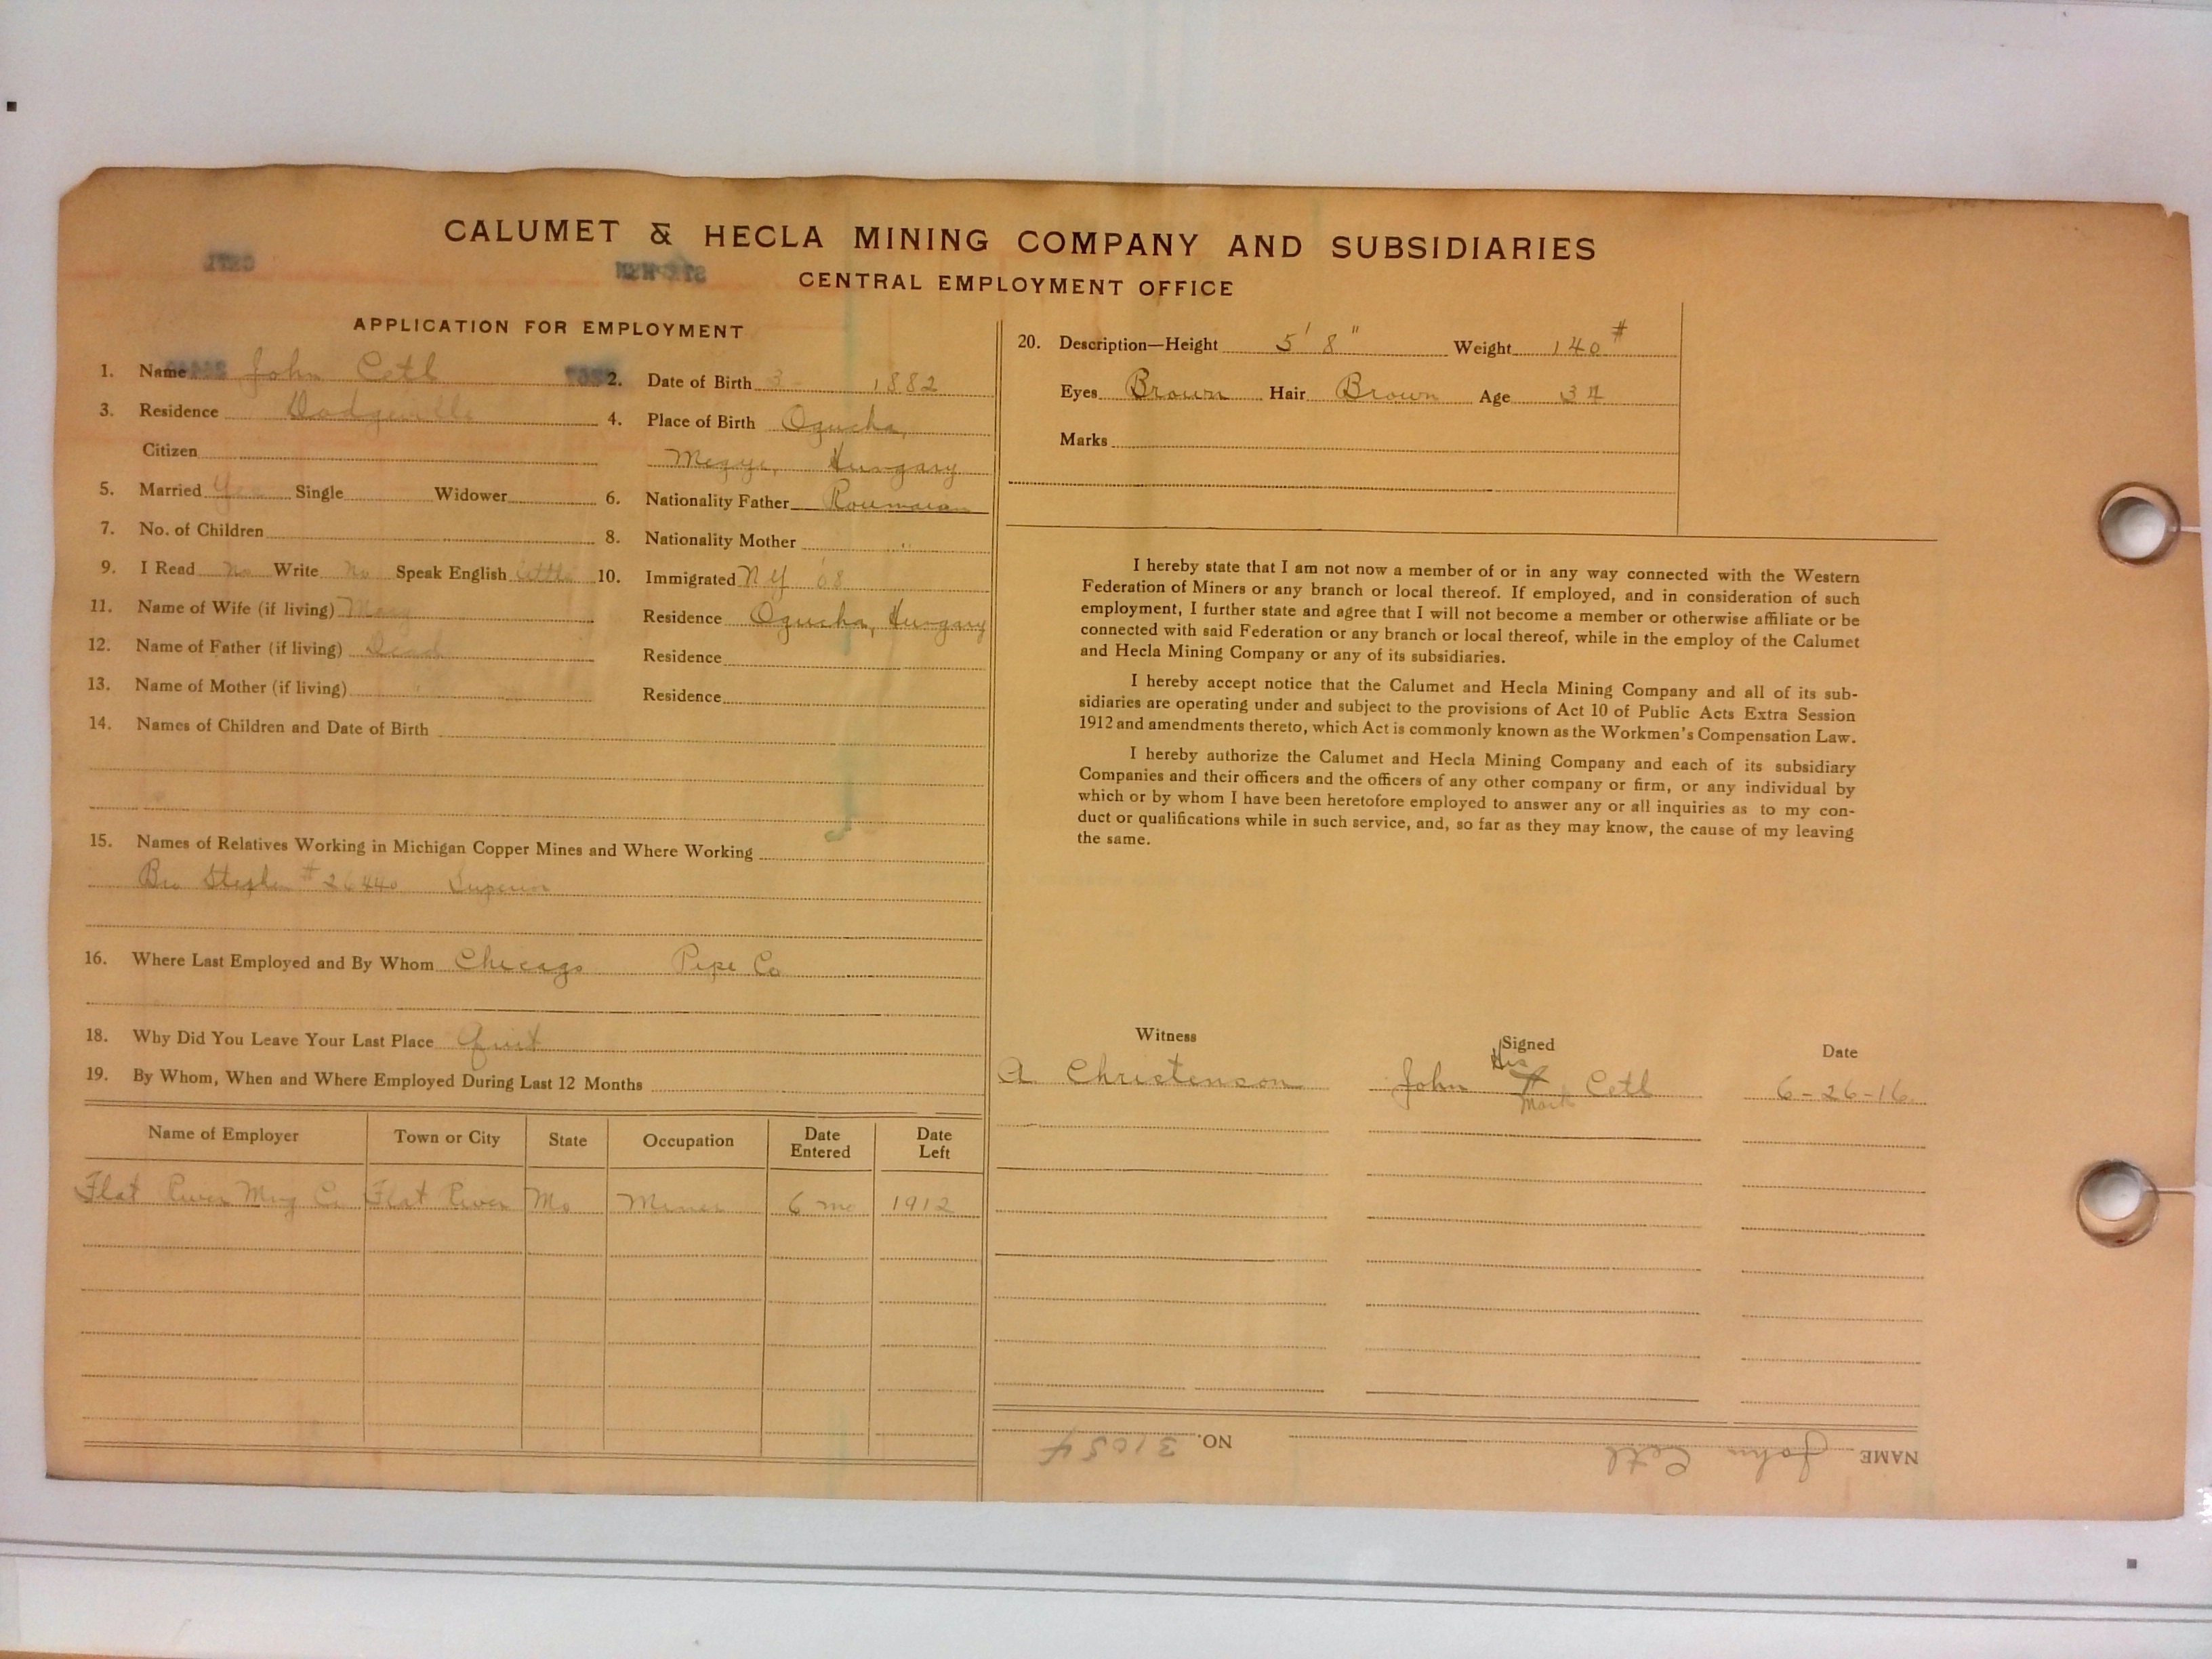 CALUMET & HECLA MINING COMPANY AND SUBSIDIARIES
CETL
STEPHEN
CENTRAL EMPLOYMENT OFFICE
APPLICATION FOR EMPLOYMENT
1. Name John Cetl
2. Date of Birth 3 1882
3. Residence Dodgeville
4. Place of Birth Ogucha,
Citizen
Megye, Hungary
5. Married Yes Single Widower
6. Nationality Father Roumaian
7. No. of Children
8. Nationality Mother "
9. I Read No Write No Speak English little
10. Immigrated N Y '08
11. Name of Wife (if living) Mary
Residence Ogucha, Hungary
12. Name of Father (if living) Dead
Residence
13. Name of Mother (if living) "
Residence
14. Names of Children and Date of Birth
15. Names of Relatives Working in Michigan Copper Mines and Where Working
Bro Stephen # 26440 Superior
16. Where Last Employed and By Whom Chicago Pipe Co
18. Why Did You Leave Your Last Place Quit
19. By Whom, When and Where Employed During Last 12 Months
Name of Employer Town or City State Occupation Date Entered Date Left
Flat River Mng Co Flat River Mo Miner 6 mo 1912
20. Description—Height 5' 8" Weight 140 #
Eyes Brown Hair Brown Age 34
Marks
I hereby state that I am not now a member of or in any way connected with the Western
Federation of Miners or any branch or local thereof. If employed, and in consideration of such
employment, I further state and agree that I will not become a member or otherwise affiliate or be
connected with said Federation or any branch or local thereof, while in the employ of the Calumet
and Hecla Mining Company or any of its subsidiaries.
I hereby accept notice that the Calumet and Hecla Mining Company and all of its sub-
sidiaries are operating under and subject to the provisions of Act 10 of Public Acts Extra Session
1912 and amendments thereto, which Act is commonly known as the Workmen's Compensation Law.
I hereby authorize the Calumet and Hecla Mining Company and each of its subsidiary
Companies and their officers and the officers of any other company or firm, or any individual by
which or by whom I have been heretofore employed to answer any or all inquiries as to my con-
duct or qualifications while in such service, and, so far as they may know, the cause of my leaving
the same.
Witness Signed Date
His
A. Christenson John X Cetl 6-26-16
Mark
NAME John Cetl NO. 31054